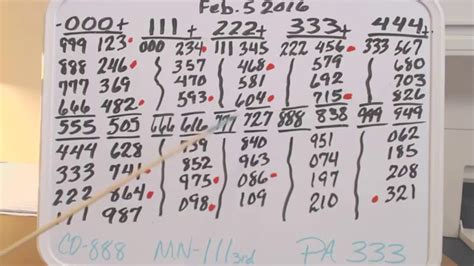 Feb. 5 2016
-000+ 111+ 222+ 333+ 444+
999 123 000 234 111 345 222 456 333 567
888 246 357 468 579 680
777 369 470 581 692 703
666 482 593 604 715 826
555 505 666 616 777 727 888 838 999 949
444 628 739 840 951 062
333 741 852 963 074 185
222 864 975 086 197 208
111 987 098 109 210 321
CO-888 MN-111 3rd PA 333